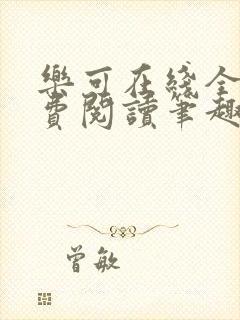 樂可在綫全
費閱讀筆趣
曾敏